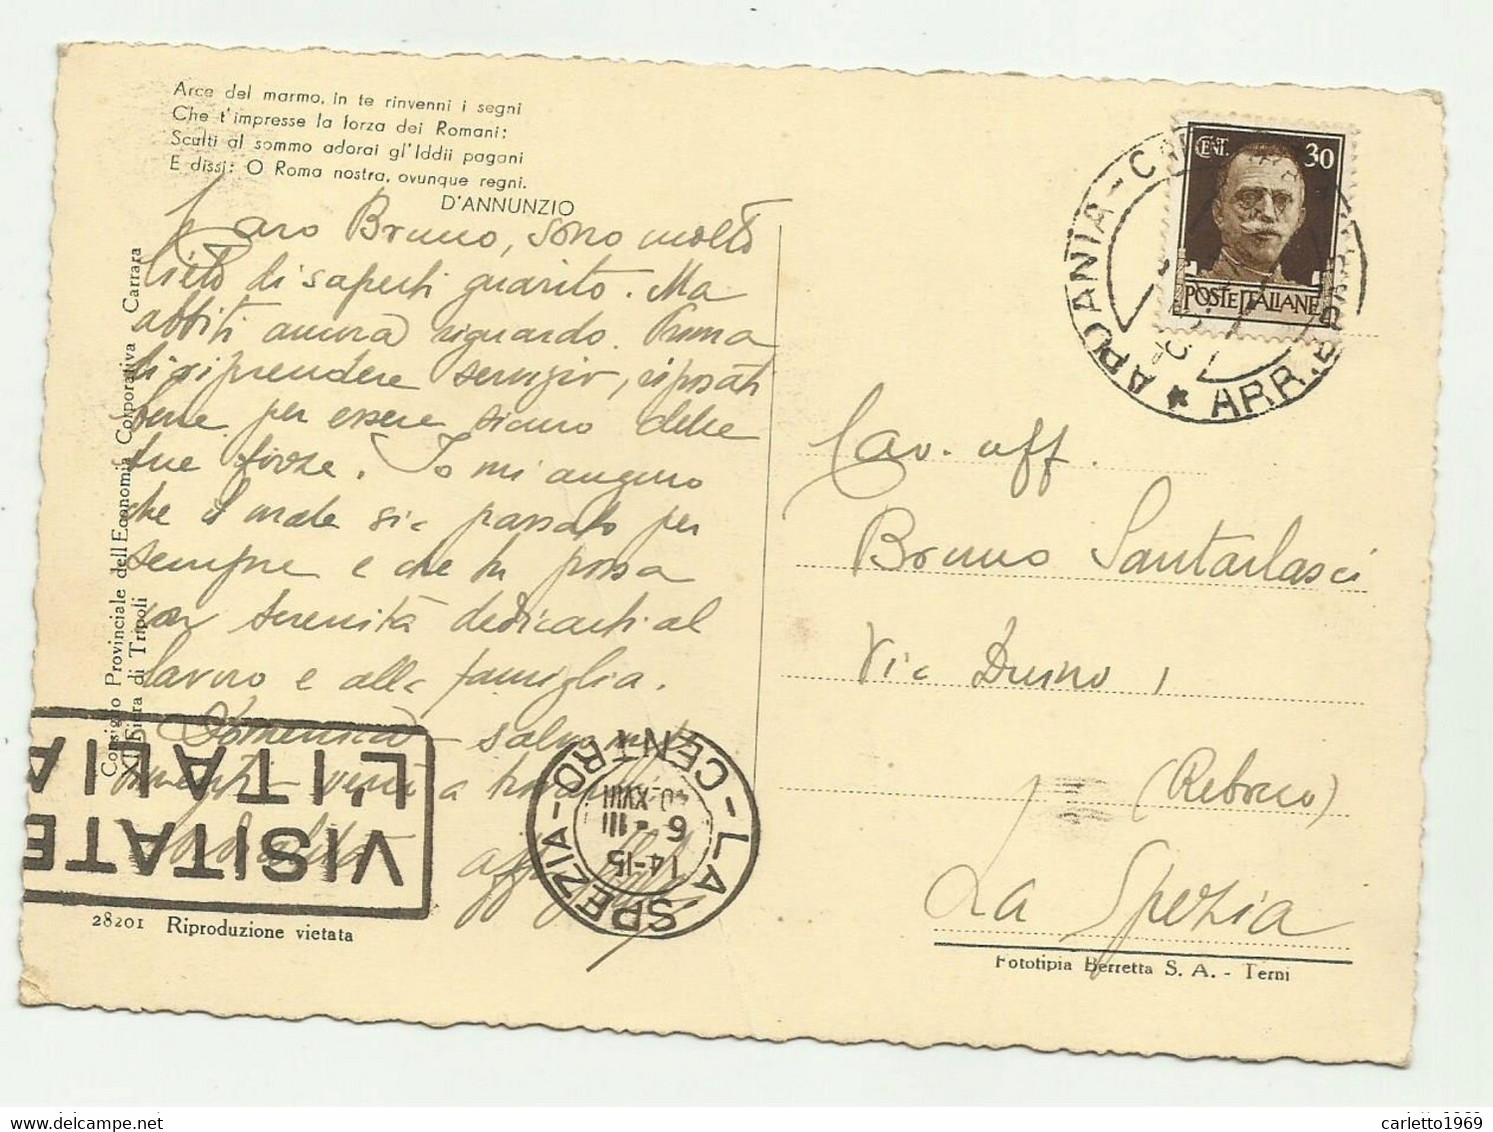 Arce del marmo, in te rinvenni i segni
Che t'impresse la forza dei Romani:
Sculti al sommo adorai gl'Iddii pagani
E dissi: O Roma nostra, ovunque regni.
D'ANNUNZIO
Caro Bruno, sono molto
lieto di saperti guarito. Ma
abbiti ancora riguardo. Prima
di riprendere servizio, riposati
bene per essere sicuro delle
tue forze. Io mi auguro
che il male sia passato per
sempre e che tu possa
con serenità dedicarti al
lavoro e alla famiglia.
Domenica - salvo
verrò a
Consiglio Provinciale dell'Economia Corporativa - Carrara
XII Fiera di Tripoli
VISITATE
L'ITALIA
LA SPEZIA - CENTRO
14-15
6 - III
40-XVIII
28201 Riproduzione vietata
CENT. 30
POSTE ITALIANE
APUANIA - ARR.
Cav. uff.
Bruno Santarlasci
Via Duino 1
(Rebocco)
La Spezia
Fototipia Berretta S. A. - Terni
carletto1969